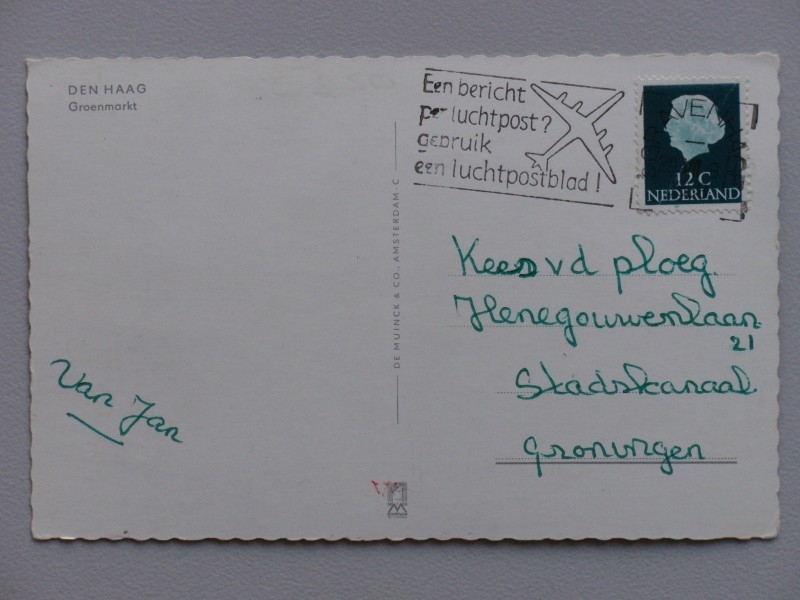 DEN HAAG
Groenmarkt
Een bericht
per luchtpost?
gebruik
een luchtpostblad!
12 C
NEDERLAND
DE MUINCK & CO., AMSTERDAM-C
Kees vd ploeg.
Henegouwenlaan
21
Stadskanaal
Groningen
Van Jan